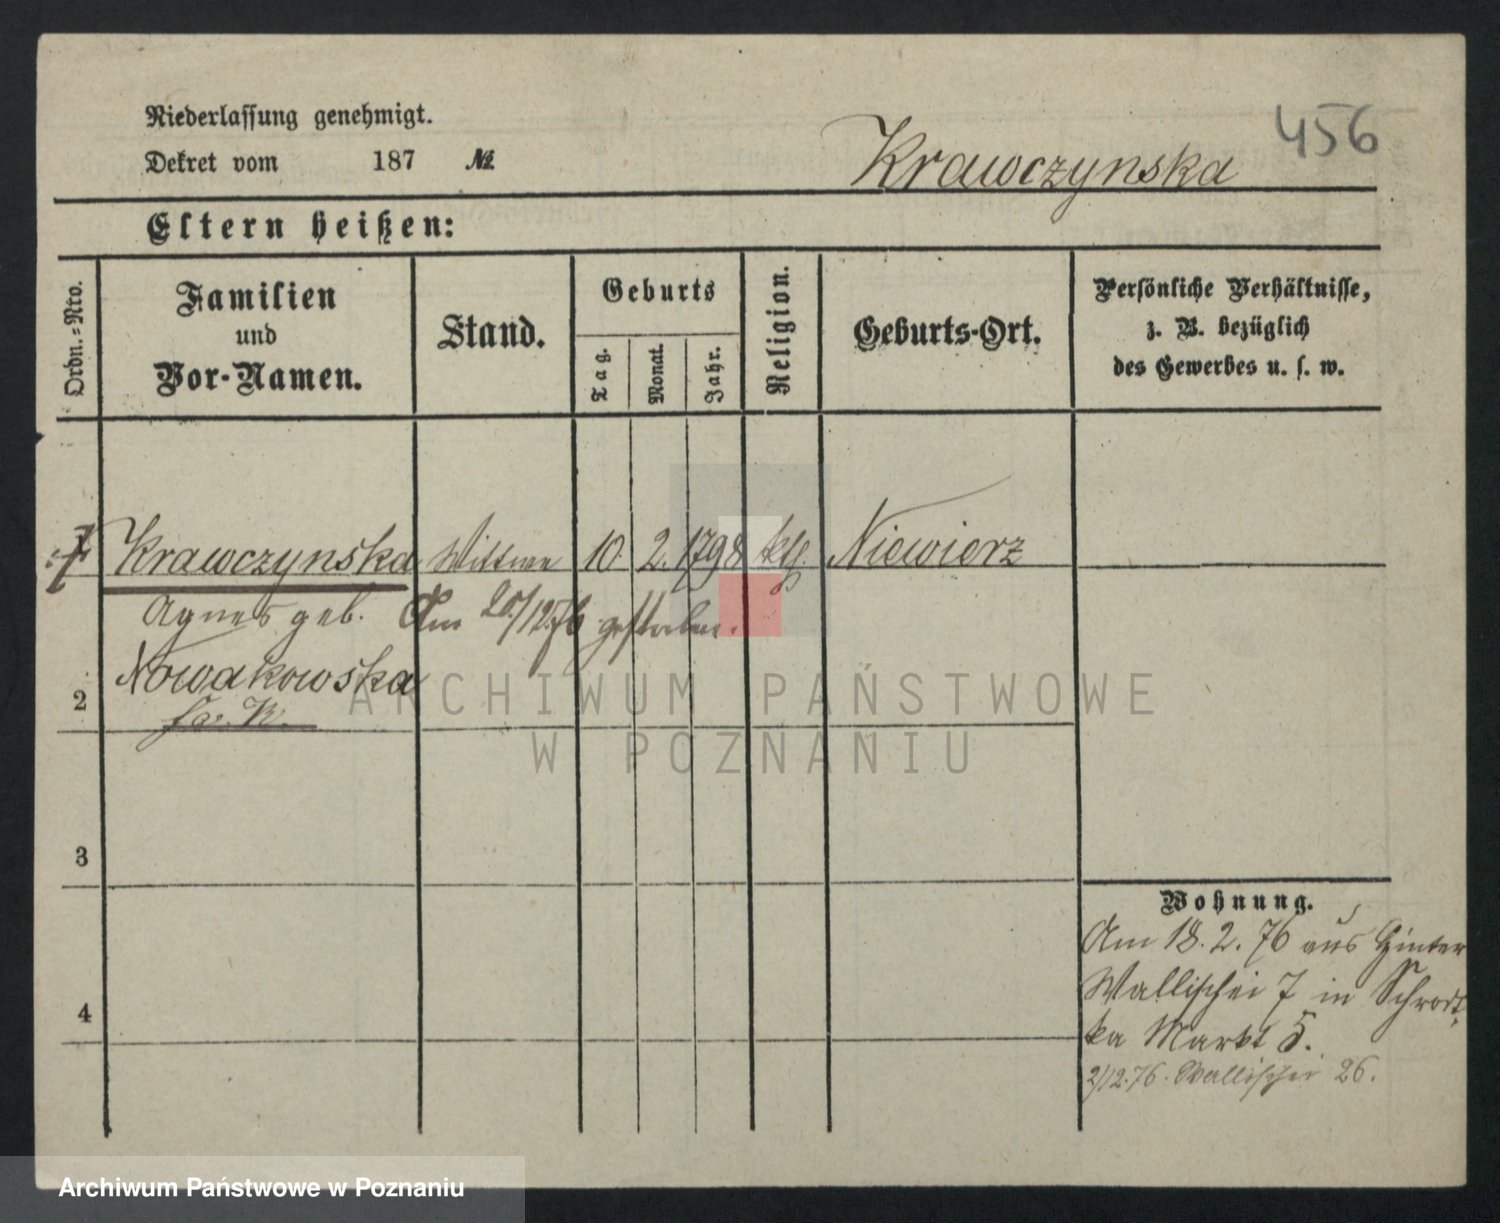 456
Niederlassung genehmigt.
Dekret vom 187 №
Krawczynska
Eltern heißen:
Ordn.-Nro.
Familien und Vor-Namen.
Stand.
Geburts
Tag.
Monat.
Jahr.
Religion.
Geburts-Ort.
Persönliche Verhältnisse,
z. B. bezüglich
des Gewerbes u. s. w.
Krawczynska Wittwe 10. 2. 1798 kth. Niewierz
Agnes geb. Am 20/12.76 gestorben.
Nowakowska
2
3
4
Wohnung.
Am 18. 2. 76 aus Hinter
Wallischei 7 in Schrod-
ka Markt 5.
2/12.76. Wallischei 26.
ARCHIWUM PAŃSTWOWE
W POZNANIU
Archiwum Państwowe w Poznaniu